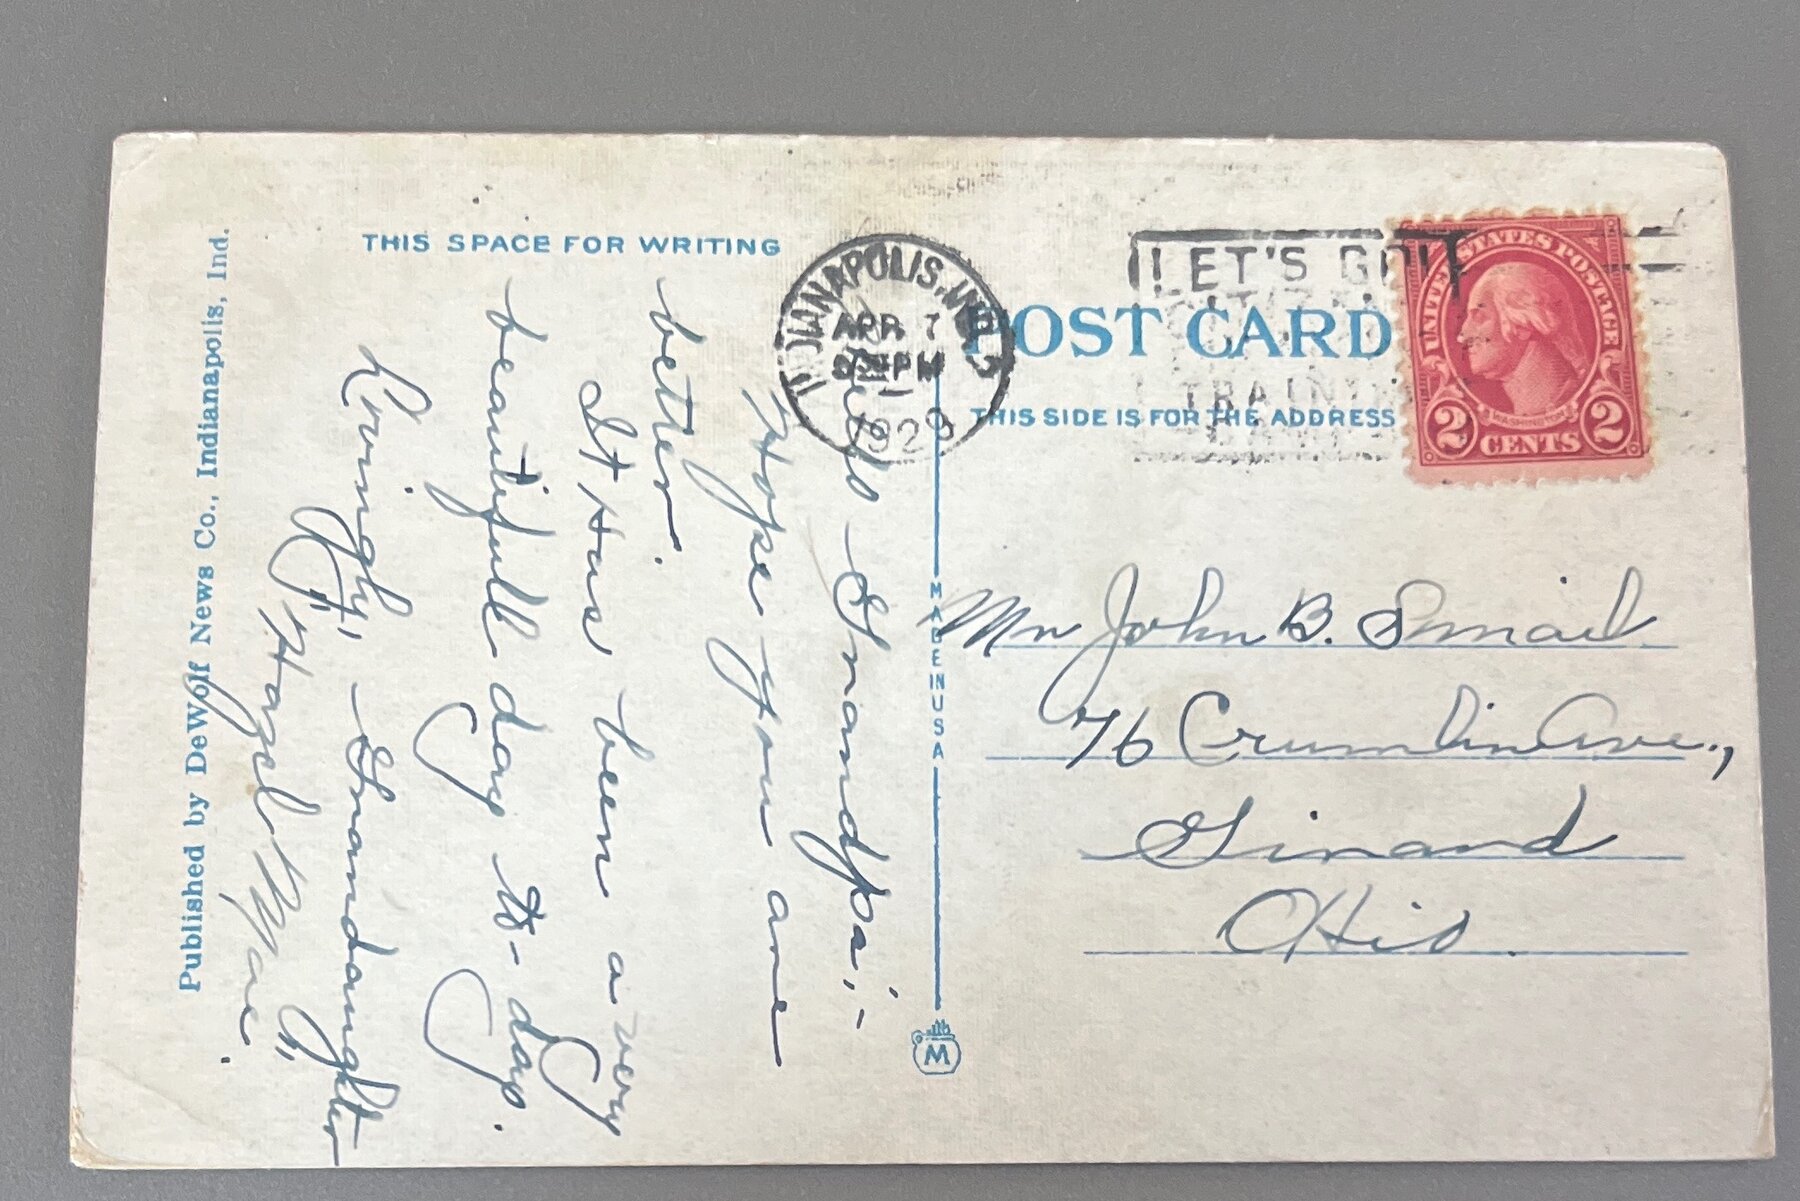 Published by DeWolf News Co., Indianapolis, Ind.
THIS SPACE FOR WRITING
Hello Grandpa;-
Hope you are
better.
It Has been a very
beautifull day to-day.
Lovingly, Granddaughter
"Hazel Mae".
INDIANAPOLIS, IND.
APR 7
PM
1928
LET'S GO!
TRAINING
POST CARD
THIS SIDE IS FOR THE ADDRESS
UNITED STATES POSTAGE
WASHINGTON
2 CENTS 2
MADE IN USA
M
Mr John B. Smail
76 Crumlin Ave.,
Girard
Ohio.